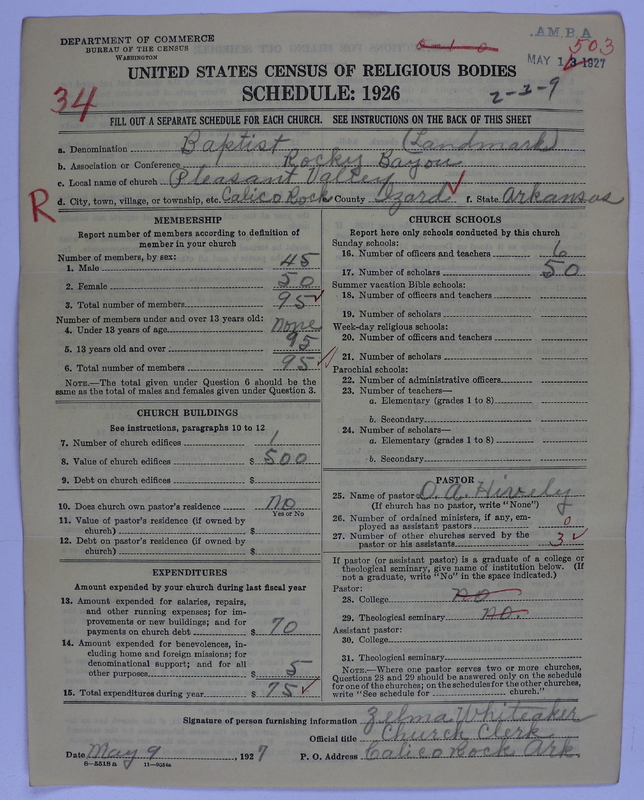 DEPARTMENT OF COMMERCE
BUREAU OF THE CENSUS
WASHINGTON
0-1-0
A.M.B.A
503
MAY 13 1927
UNITED STATES CENSUS OF RELIGIOUS BODIES
SCHEDULE: 1926
34
2-1-9
FILL OUT A SEPARATE SCHEDULE FOR EACH CHURCH. SEE INSTRUCTIONS ON THE BACK OF THIS SHEET
a. Denomination Baptist (Landmark)
b. Association or Conference Rocky Bayou
c. Local name of church Pleasant Valley
R
d. City, town, village, or township, etc. Calico Rock County Izard f. State Arkansas
MEMBERSHIP
Report number of members according to definition of
member in your church
Number of members, by sex:
1. Male 45
2. Female 50
3. Total number of members 95
Number of members under and over 13 years old:
4. Under 13 years of age none
5. 13 years old and over 95
6. Total number of members 95
NOTE.—The total given under Question 6 should be the
same as the total of males and females given under Question 3.
CHURCH BUILDINGS
See instructions, paragraphs 10 to 12
7. Number of church edifices 1
8. Value of church edifices $ 500
9. Debt on church edifices $
10. Does church own pastor's residence no
Yes or No
11. Value of pastor's residence (if owned by
church) $
12. Debt on pastor's residence (if owned by
church) $
EXPENDITURES
Amount expended by your church during last fiscal year
13. Amount expended for salaries, repairs,
and other running expenses; for im-
provements or new buildings; and for
payments on church debt $ 70
14. Amount expended for benevolences, in-
cluding home and foreign missions; for
denominational support; and for all
other purposes $ 5
15. Total expenditures during year $ 75
CHURCH SCHOOLS
Report here only schools conducted by this church
Sunday schools:
16. Number of officers and teachers 6
17. Number of scholars 50
Summer vacation Bible schools:
18. Number of officers and teachers
19. Number of scholars
Week-day religious schools:
20. Number of officers and teachers
21. Number of scholars
Parochial schools:
22. Number of administrative officers
23. Number of teachers—
a. Elementary (grades 1 to 8)
b. Secondary
24. Number of scholars—
a. Elementary (grades 1 to 8)
b. Secondary
PASTOR
25. Name of pastor O. A. Hively
(If church has no pastor, write "None")
26. Number of ordained ministers, if any, em-
ployed as assistant pastors 0
27. Number of other churches served by the
pastor or his assistants 3
If pastor (or assistant pastor) is a graduate of a college or
theological seminary, give name of institution below. (If
not a graduate, write "No" in the space indicated.)
Pastor:
28. College no
29. Theological seminary no.
Assistant pastor:
30. College
31. Theological seminary
NOTE.—Where one pastor serves two or more churches,
Questions 28 and 29 should be answered only on the schedule
for one of the churches; on the schedules for the other churches,
write "See schedule for church."
Signature of person furnishing information Zelma Whiteaker
Official title Church Clerk
Date May 9, 1927 P. O. Address Calico Rock Ark
8-5518a 11-9054a